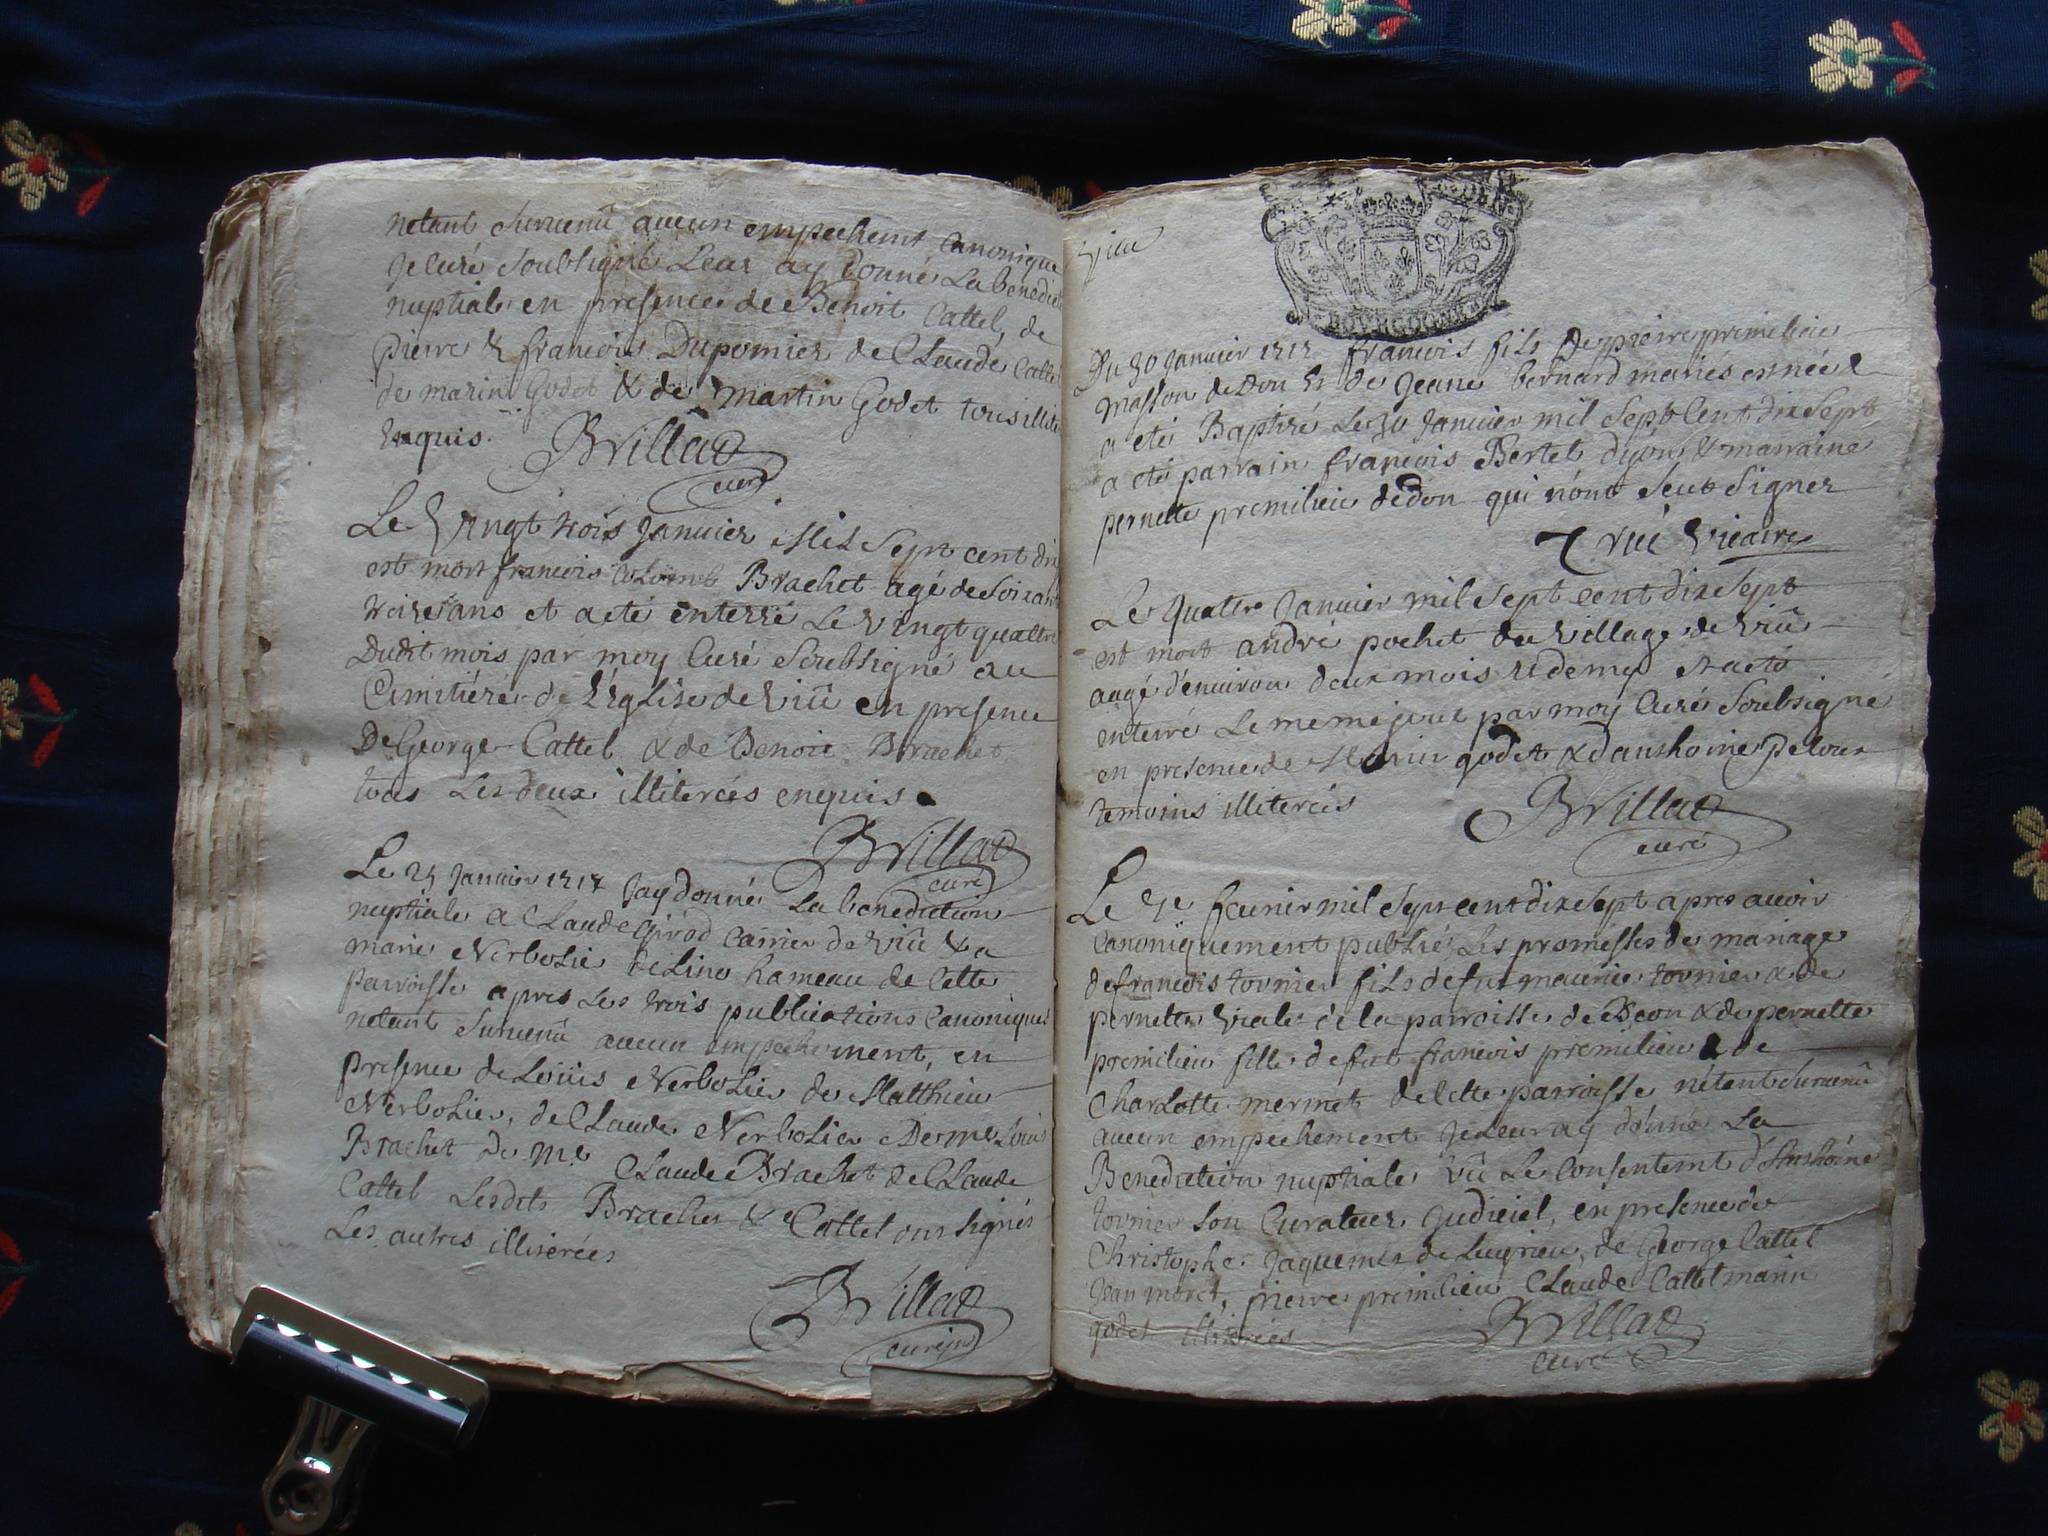 netant survenû aucun empechemt Canonique
Je Curé Soubsigné Leur ay donné La benedict
nuptiale en presence de Benoit Cattel, de
pierre & francois Dupomier de Claude Cattel
de marin Godet & de martin Godet tous illite
enquis.
Brillat
curé
Le Vingt trois Janvier Mil Sept cent dix
est mort francois Brachet agé de Soixante
treize ans et a eté enterré Le Vingt quattre
Dudit mois par moy Curé Soubsigné au
Cimitiére de L'Eglise de Viû en presence
De George Cattel & de Benoit Brachet
tous Les deux illiterés enquis.
Brillat
curé
Le 25 Janvier 1717 Jay donné La benediction
nuptiale a Claude Girod Carrier de Viû & a
marie Nerbolier de Lino hameau de Cette
Parroisse apres Les trois publications Canoniques
netant Survenû aucun empechement, en
Presence de Loüis Nerbolier de Matthieu
Nerbolier, de Claude Nerbolier De me Louis
Brachet de me Claude Brachet de Claude
Cattel Lesdits Brachet & Cattel ont signés
Les autres illiterées
Brillat
curé
Vieu
BOURGOGNE
Du 30 Janvier 1717 francois fils De pierre premilieu
masson de Don & de Jeane bernard mariés est né &
a eté Baptizé Le 30 Janvier mil Sept Cent dix Sept
a eté parrain francois Bertet & marraine
pernette premilieu de don qui n'ont Sçeut Signer
Vicaire
Le quattre Janvier mil Sept cent dix Sept
est mort andré pochet du Village de Viû
augé d'environ deux mois et demy et a eté
enterré Le meme jour par moy Curé Soubsigné
en presence de Marin godet & d'anthoine
temoins illiterés
Brillat
curé
Le fevrier mil Sept cent dix Sept apres avoir
Canoniquement publié Les promesses de mariage
de francois tornier fils de fut maurice tornier & de
pernette Viale de la parroisse de Beon & de pernette
premilieu fille de fut francois premilieu & de
Charlotte mermet de Cette parroisse n'étant Survenû
aucun empechement Je Leur ay donné La
Benediction nuptiale Vû Le Consentemt d'Anthoine
tornier Son Curateur Judiciel, en presence de
Christophe Jaquemet de Luyrieu, de George Cattel
Jean moret, pierre premilieu Claude Cattel marin
godet illiterées
Brillat
curé